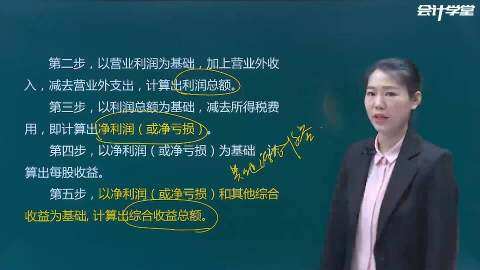 会计学堂
第二步，以营业利润为基础，加上营业外收
入，减去营业外支出，计算出利润总额。
第三步，以利润总额为基础，减去所得税费
用，即计算出净利润（或净亏损）。
第四步，以净利润（或净亏损）为基础，
算出每股收益。
第五步，以净利润（或净亏损）和其他综合
收益为基础, 计算出综合收益总额。